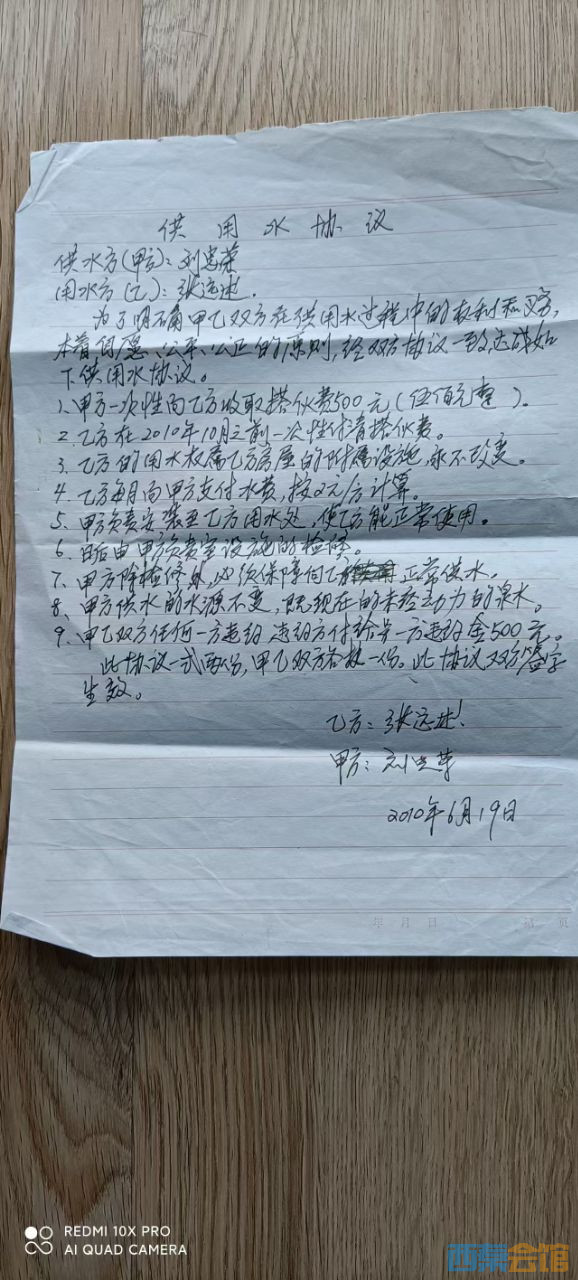 供用水协议
供水方(甲方):刘忠荣
用水方(乙):张远述.
为了明确甲乙双方在供用水过程中的权利和义务,
本着自愿、公平、公正的原则,经双方协议一致,达成如
下供用水协议。
1、甲方一次性向乙方收取搭伙费500元(伍佰元整)。
2、乙方在2010年10月之前一次性付清搭伙费。
3、乙方的用水权属乙方房屋的附属设施,永不改变。
4、乙方每月向甲方支付水费,按2元/方计算。
5、甲方负责安装至乙方用水处,使乙方能正常使用。
6、日后由甲方负责室设施的检修。
7、甲方除检修外,必须保障向乙方正常供水。
8、甲方供水的水源不变,既现在的未经动力的泉水。
9、甲乙双方任何一方违约,违约方付给另一方违约金500元。
此协议一式两份,甲乙双方各执一份。此协议双方签字
生效。
乙方:张远述
甲方:刘忠荣
2010年6月19日
年 月 日
页
REDMI 10X PRO
AI QUAD CAMERA
西渠会馆